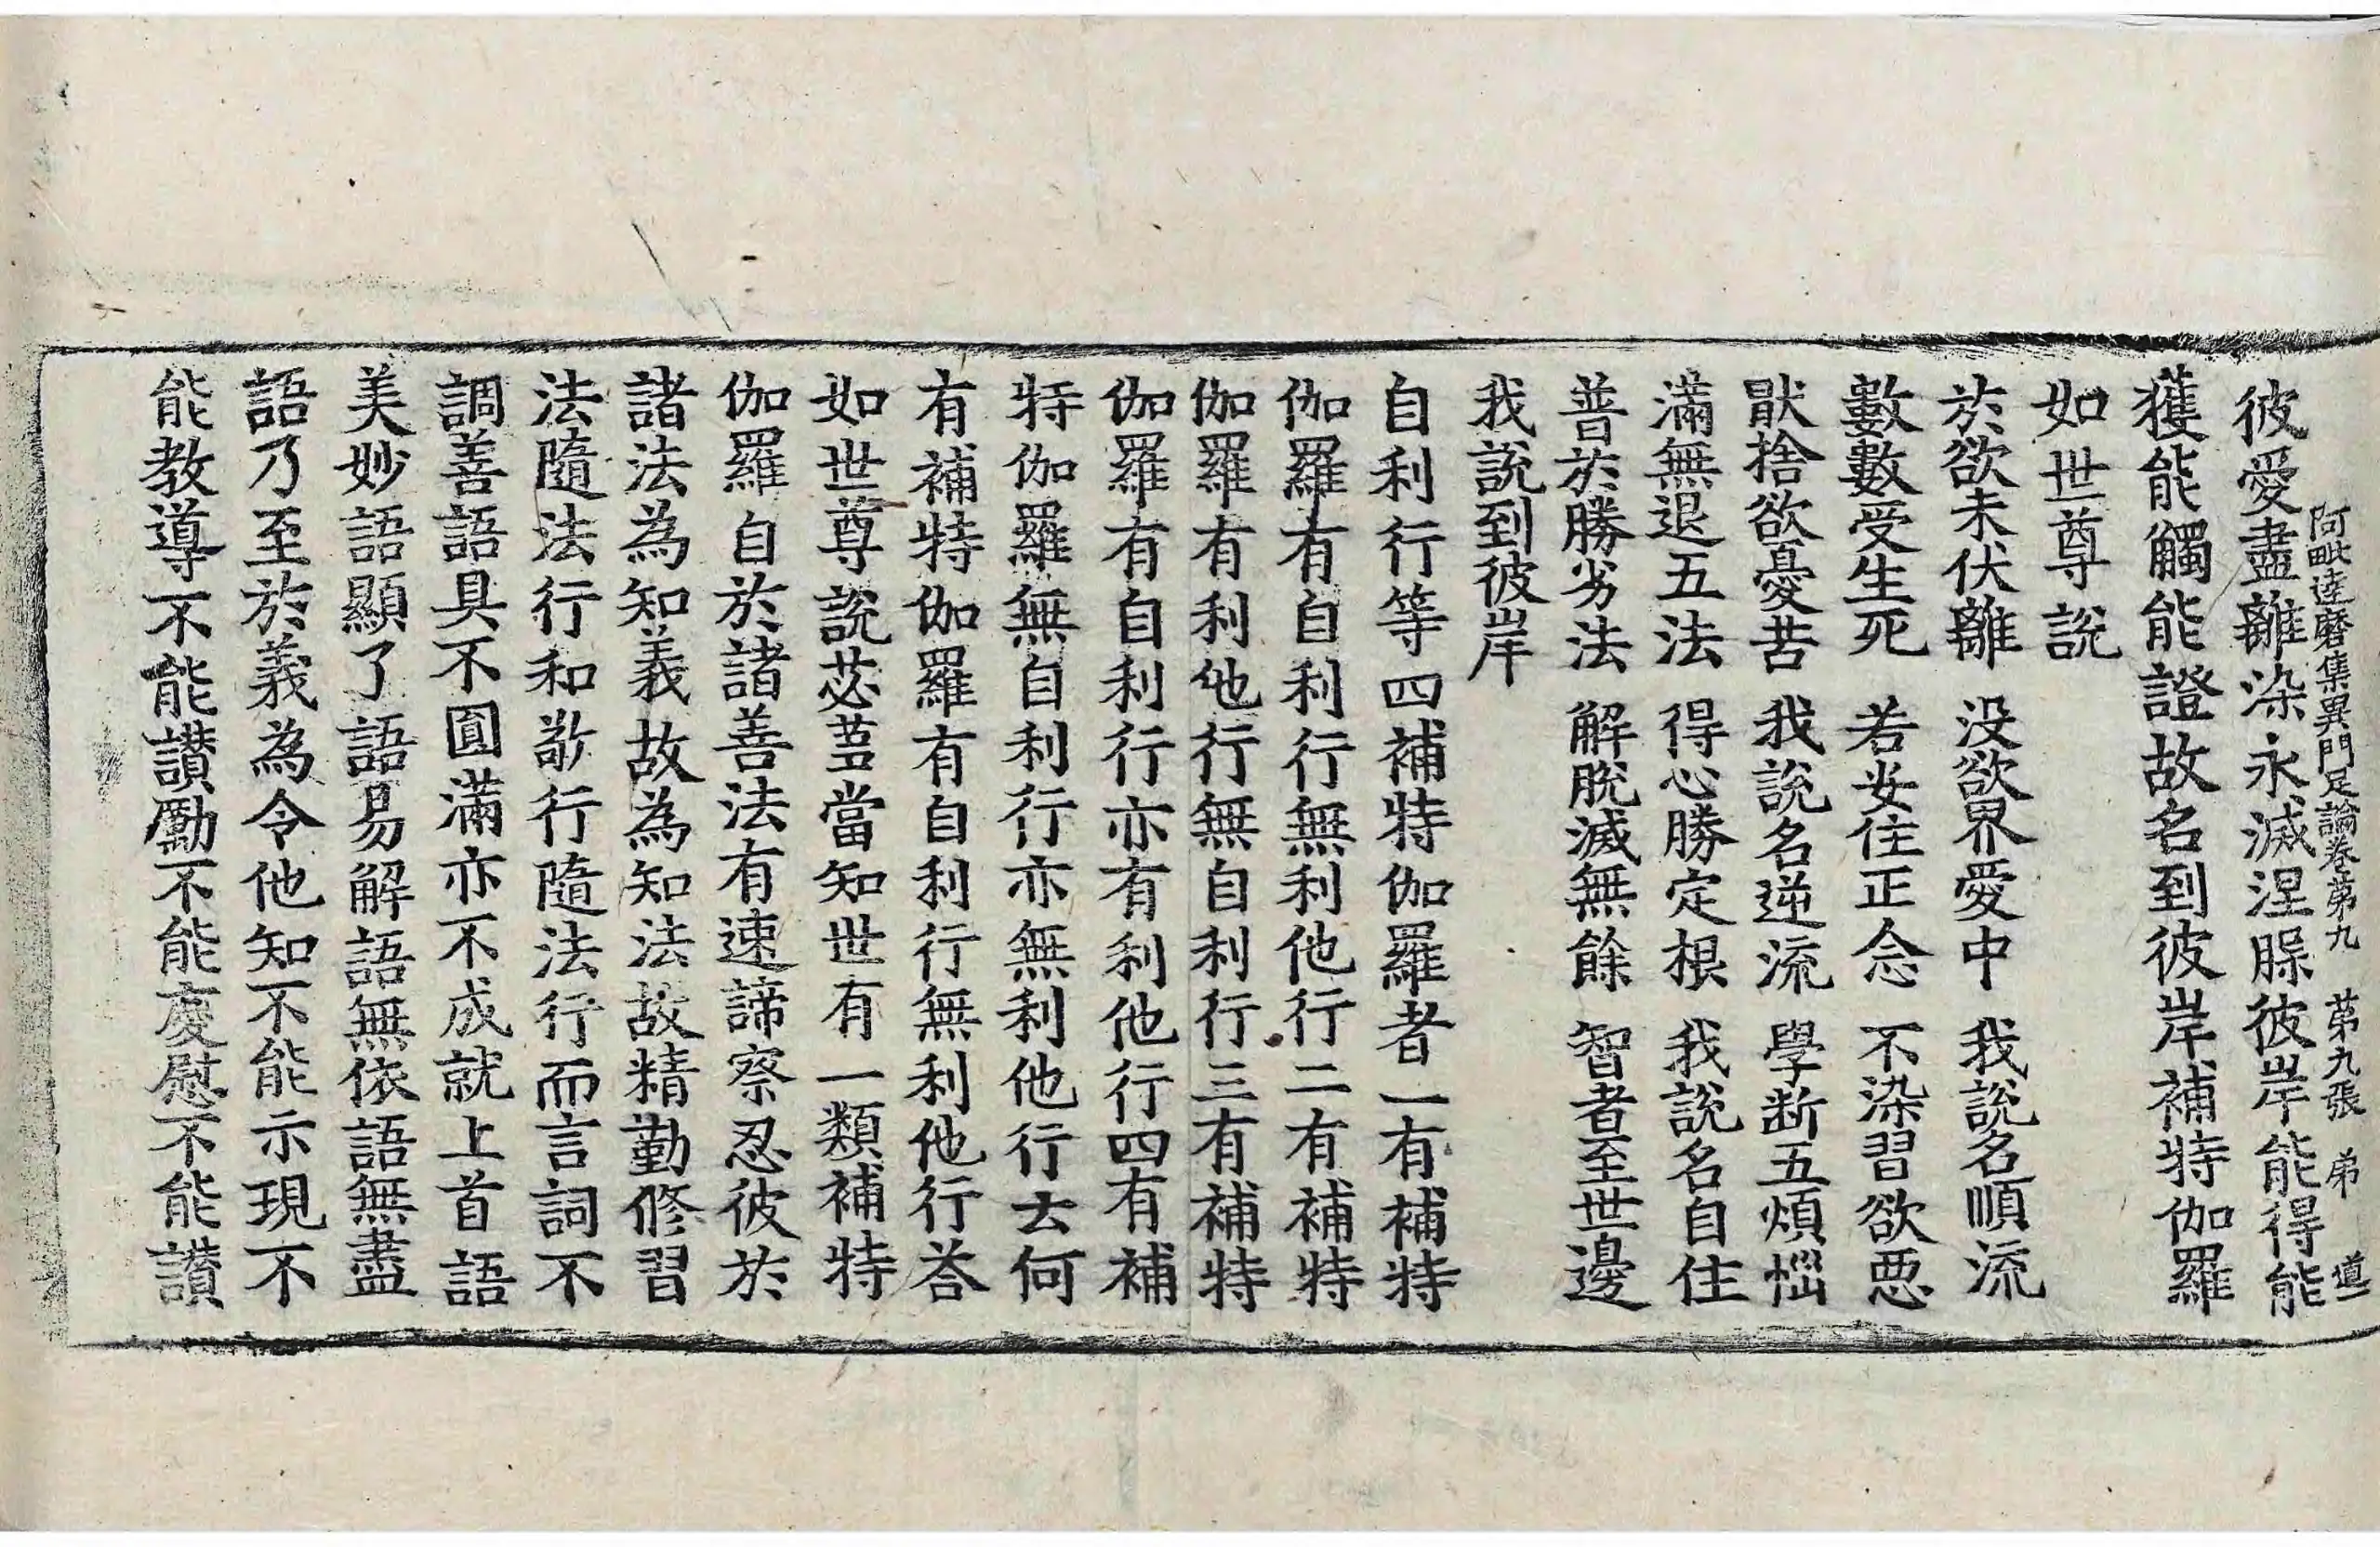 阿毗達磨集異門足論卷第九　第九張　弟　道一
彼愛盡離染永滅涅槃彼岸能得能
獲能觸能證故名到彼岸補特伽羅
如世尊說
於欲未伏離　没欲界愛中　我說名順流
數數受生死　若安住正念　不染習欲惡
猒捨欲憂苦　我說名逆流　學断五煩惱
滿無退五法　得心勝定根　我說名自住
普於勝劣法　解脫滅無餘　智者至世邊
我說到彼岸
自利行等四補特伽羅者一有補特
伽羅有自利行無利他行二有補特
伽羅有利他行無自利行三有補特
伽羅有自利行亦有利他行四有補
特伽羅無自利行亦無利他行云何
有補特伽羅有自利行無利他行荅
如世尊說苾蒭當知世有一類補特
伽羅自於諸善法有速諦察忍彼於
諸法為知義故為知法故精勤修習
法隨法行和敬行隨法行而言詞不
調善語具不圓滿亦不成就上首語
美妙語顯了語易解語無依語無盡
語乃至於義為令他知不能示現不
能教導不能讃勵不能慶慰不能讃